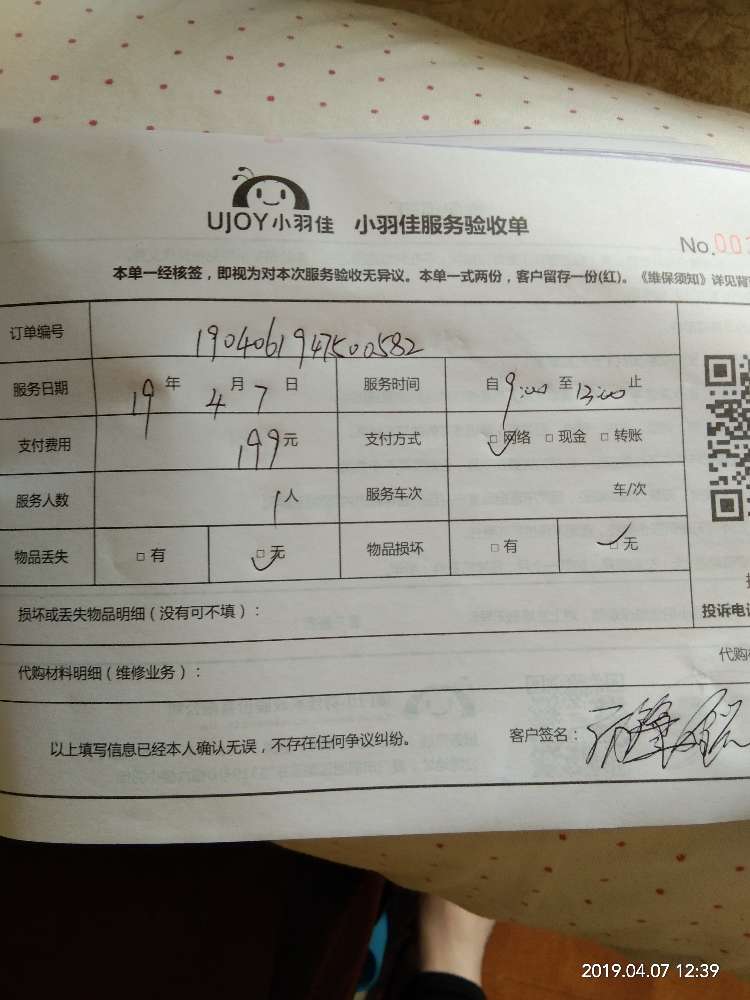 UJOY小羽佳 小羽佳服务验收单
No.00
本单一经核签，即视为对本次服务验收无异议。本单一式两份，客户留存一份(红)。《维保须知》详见背
订单编号 1904061947500582
服务日期 19年 4月7日 服务时间 自9:00至13:00止
支付费用 199元 支付方式 □网络 □现金 □转账
服务人数 1人 服务车次 车/次
物品丢失 □有 □无 物品损坏 □有 □无
损坏或丢失物品明细（没有可不填）：
投诉电话
代购材料明细（维修业务）：
代购
以上填写信息已经本人确认无误，不存在任何争议纠纷。 客户签名：
2019.04.07 12:39